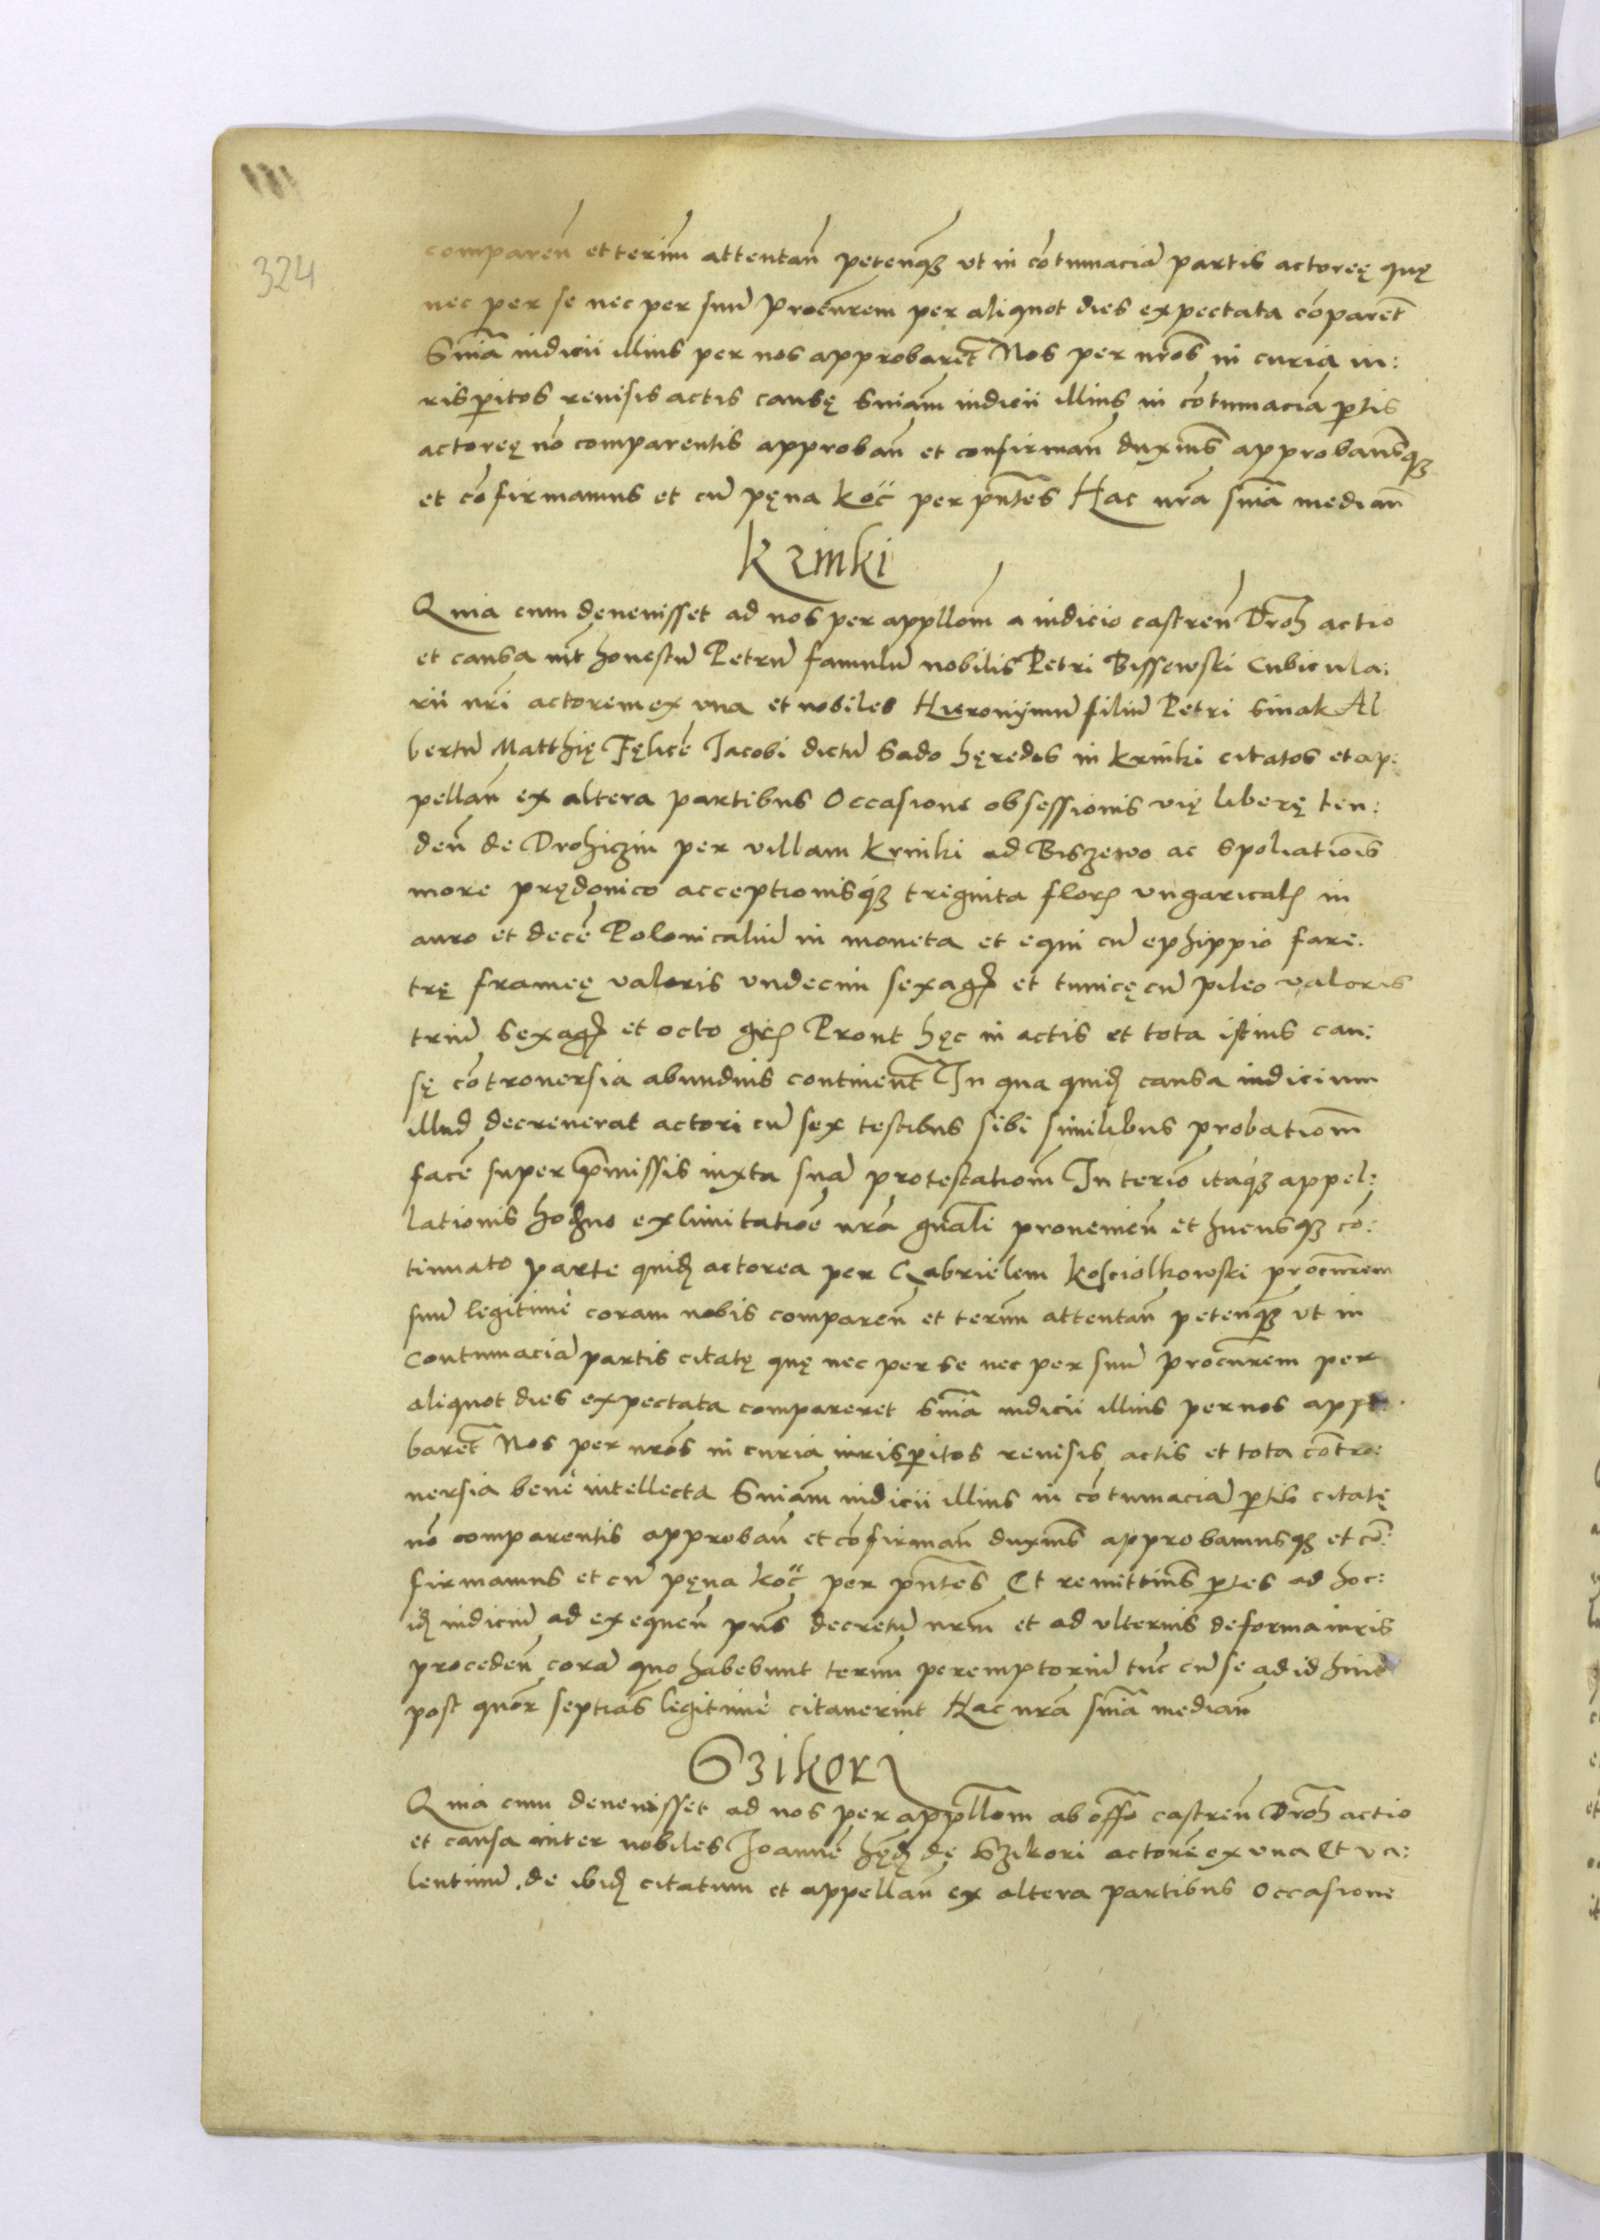 324
comparen̄ et terim̄ attentan̄ petenq̄ꝫ vt in cōtumaciā partis actoreę quę
nec per se nec per suū procūrem per aliquot dies expectata cōparet̄
Sn̄ia iudicii illius per nos approbaret̄ Nos per nr̄os in curia iu:
risꝑitos reuisis actis causę Sniam̄ iudicii illius in cōtumaciā ꝑtis
actoreę nō comparentis approban̄ et confirman̄ duxim̄s approbam̄sqꝫ
et cōfirmamus et cū pęna koc̈ per pn̄tes Hac nr̄a sn̄ia median̄
Krinki
Quia cum dęuenisset ad nos per appllom̄ a iudicio castren̄ Droh̄ actio
et causa int̄ honestū Petrū famulū nobilis Petri Bissewski Cubicula:
rii nr̄i actorem ex vna et nobiles Hieronijmū filiū Petri Smak Al
bertū Matthię Fęlicē Jacobi dictū Sado hęredes in Krinki citatos et ap:
pellan̄ ex altera partibus Occasione obsessionis vię liberę ten:
den̄ de Drohiczin per villam Krinki ad Biszewo ac spoliatiōis
more prędonico acceptionisq́ꝫ triginta florꝭ vngaricalꝭ in
auro et decē Polonicaliū in moneta et equi cū ephippio fare:
trę frameę valoris vndecim sexagꝭ et tunicę cū pileo valoris
triū sexagꝭ et octo grꝭ Prout hęc in actis et tota istius cau:
sę cōtrouersia abundius continent̄ In qua quidꝭ causa iudicium
illud decreuerat actori cū sex testibus sibi similibus probatiom̄
facē super p̄missis iuxta suā protestatiom̄ In terīo itaq́ꝫ appel:
lationis hodꝭno ex limitatiōe nr̄a gn̄ali prouenien̄ et hucusqꝫ cō:
tinuato parte quidꝭ actorea per Gabrielem Kosciolkowski procūrem
suū legitimè coram nobis comparen̄ et term̄ attentan̄ petenq̄ꝫ vt in
Contumaciā partis citatę quę nec per se nec per suū procūrem per
aliquot dies expectata compareret Sn̄ia iudicii illius per nos appro
baret̄ Nos per nr̄os in curia iurisꝑitos reuisis actis et tota cōtro:
uersia benè intellecta Sniam̄ iudicii illius in cōtumaciā ꝑtis citatę
nō comparentis approban̄ et cōfirman̄ duxim̄s approbamusqꝫ et cō:
firmamus et cū pęna koc̈ per pn̄tes Et remittim̄s ꝑtes ad hoc:
idꝭ iudiciū ad exequen̄ pn̄s decretū nrm̄ et ad vlterius de forma iuris
proceden̄ corā quo habebunt term̄ peremptoriū tūc cū se ad id hinc
post quōr septiās legitimè citauerint Hac nr̄a sn̄ia median̄
Szikori
Quia cum deuenisset ad nos per appllom̄ ab off̄o castren̄ Droh̄ actio
et causa inter nobiles Joannē hędꝭ dę Szikori actorē ex vna Et va:
lentinū de ibidꝭ citatum et appellan̄ ex altera partibus Occasione